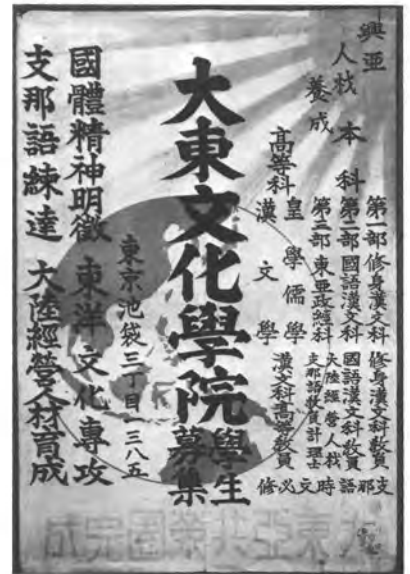 興亜
人材
養成
本科
第一部 修身漢文科 修身漢文科教員
第二部 國語漢文科 國語漢文科教員
第三部 東亜政経科 大陸経営人材
支那語教員計理士
支那語時文必修
高等科
皇學儒學
漢文學 漢文科高等教員
大東文化學院 學生募集
東京池袋三丁目一三八五
國體精神明徴 東洋文化専攻
支那語練達 大陸經營人材育成
大東亞共榮圏完成